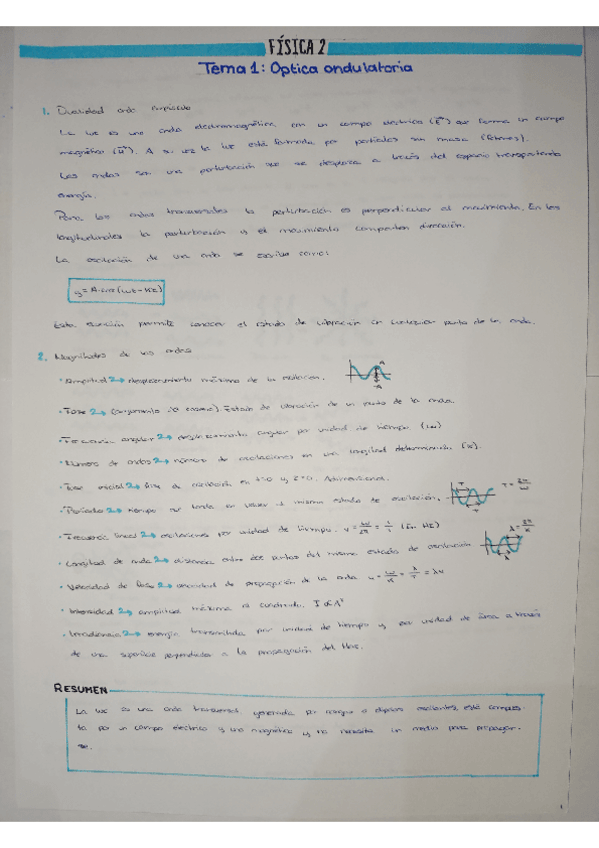 FÍSICA 2
Tema 1: Optica ondulatoria
1. Dualidad onda corpúsculo
La luz es una onda electromagnética, con un campo eléctrico (E) que forma un campo
magnético (H). A su vez la luz está formada por partículas sin masa (fotones).
Las ondas son una perturbación que se desplaza a través del espacio transportando
energía.
Para las ondas transversales la perturbación es perpendicular al movimiento. En las
longitudinales la perturbación y el movimiento comparten dirección.
La oscilación de una onda se escribe como:
y = A·cos(ωt - kz)
Esta ecuación permite conocer el estado de vibración en cualquier punto de la onda.
2. Magnitudes de las ondas
· Amplitud → desplazamiento máximo de la oscilación.
A
-A
· Fase → (argumento del coseno) Estado de vibración de un punto de la onda.
· Frecuencia angular → desplazamiento angular por unidad de tiempo. (ω)
· Número de ondas → número de oscilaciones en una longitud determinada. (k).
· Fase inicial → fase de oscilación en t=0 y z=0. Adimensional.
· Período → tiempo que tarda en volver al mismo estado de oscilación.
T
T = 2π/ω
· Frecuencia lineal → oscilaciones por unidad de tiempo. ν = ω/2π = 1/T (En Hz)
· Longitud de onda → distancia entre dos puntos del mismo estado de oscilación
λ = 2π/k
λ
· Velocidad de fase → velocidad de propagación de la onda v = ω/k = λ/T = λν
· Intensidad → amplitud máxima al cuadrado. I α A²
· Irradiancia → energía transmitida por unidad de tiempo y por unidad de área a través
de una superficie perpendicular a la propagación del haz.
RESUMEN
La luz es una onda transversal, generada por cargas o dipolos oscilantes, está compues-
ta por un campo eléctrico y uno magnético y no necesita un medio para propagar-
se.